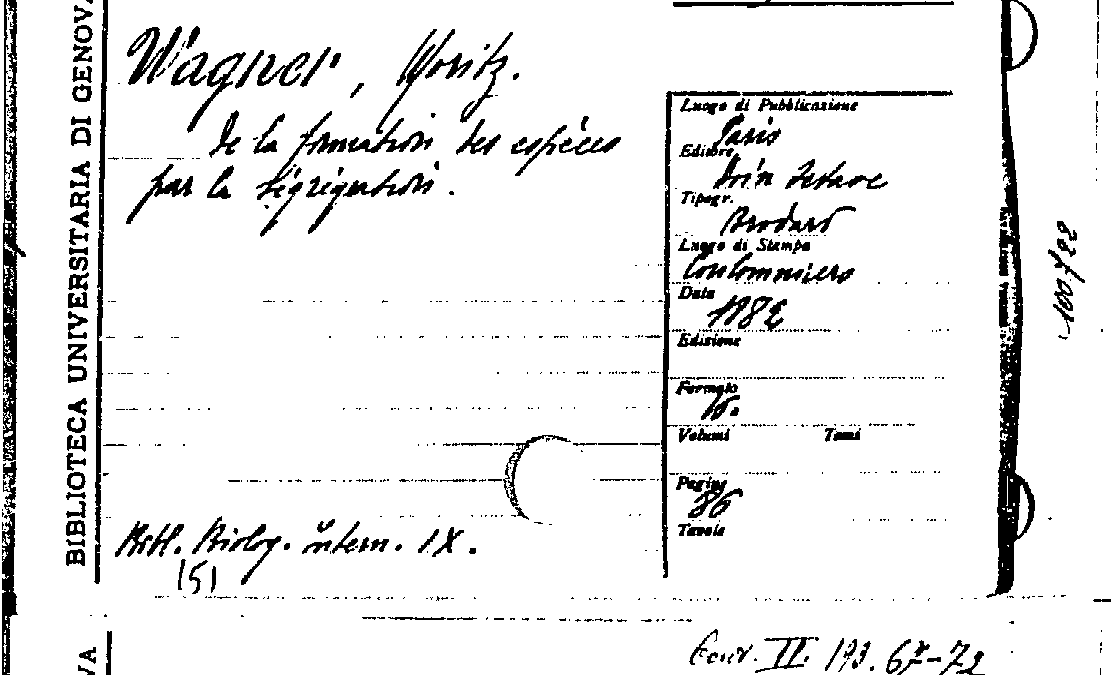 BIBLIOTECA UNIVERSITARIA DI GENOVA
Wagner, Moritz.
De la formation des espèces
par la ségrégation.
Luogo di Pubblicazione
Paris
Editore
Doin Octave
Tipogr.
Brodard
Luogo di Stampa
Coulommiers
Data
1882
Edizione
Formato
16.
Volumi Tomi
Pagine
86
Tavole
Bibl. Biolog. intern. IX.
151
VA
II. 193. 67-72